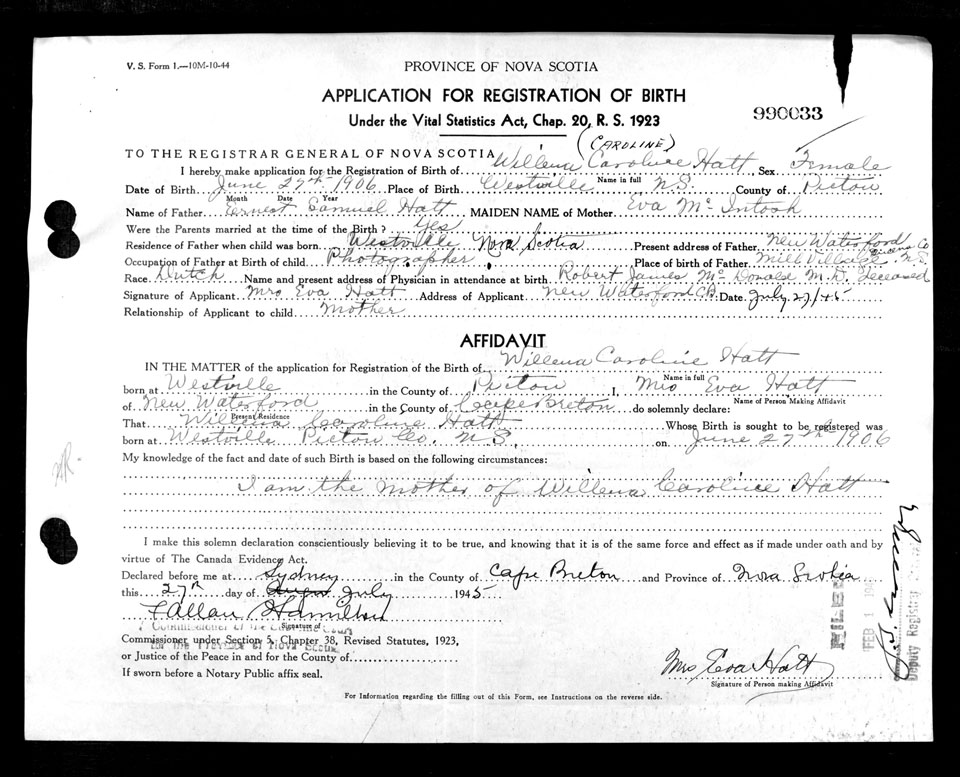 V. S. Form 1.—10M-10-44
PROVINCE OF NOVA SCOTIA
APPLICATION FOR REGISTRATION OF BIRTH
990033
Under the Vital Statistics Act, Chap. 20, R. S. 1923
(CAROLINE)
TO THE REGISTRAR GENERAL OF NOVA SCOTIA
I hereby make application for the Registration of Birth of Willena Caroline Hatt Sex Female
Name in full
Date of Birth June 27th 1906 Place of Birth Westville N.S. County of Pictou
Month Date Year
Name of Father Ernest Samuel Hatt MAIDEN NAME of Mother Eva McIntosh
Were the Parents married at the time of the Birth? Yes
Residence of Father when child was born Westville Nova Scotia Present address of Father New Waterford
Occupation of Father at Birth of child Photographer Place of birth of Father Mill Village N.S.
Race Dutch Name and present address of Physician in attendance at birth Robert James McDonald M.D. Deceased
Signature of Applicant Mrs Eva Hatt Address of Applicant New Waterford C.B. Date July 27/45
Relationship of Applicant to child Mother
AFFIDAVIT
IN THE MATTER of the application for Registration of the Birth of Willena Caroline Hatt
Name in full
born at Westville in the County of Pictou I, Mrs Eva Hatt
Name of Person Making Affidavit
of New Waterford in the County of Cape Breton do solemnly declare:
Present Residence
That Willena Caroline Hatt Whose Birth is sought to be registered was
born at Westville Pictou Co. N.S. on June 27th 1906
My knowledge of the fact and date of such Birth is based on the following circumstances:
I am the mother of Willena Caroline Hatt
I make this solemn declaration conscientiously believing it to be true, and knowing that it is of the same force and effect as if made under oath and by
virtue of The Canada Evidence Act.
Declared before me at Sydney in the County of Cape Breton and Province of Nova Scotia
this 27th day of July 1945
F Allan Hamilton
Signature of
Commissioner under Section 5, Chapter 38, Revised Statutes, 1923,
or Justice of the Peace in and for the County of
If sworn before a Notary Public affix seal.
Mrs Eva Hatt
Signature of Person making Affidavit
For Information regarding the filling out of this Form, see Instructions on the reverse side.
FILED
FEB 1
Deputy Registrar